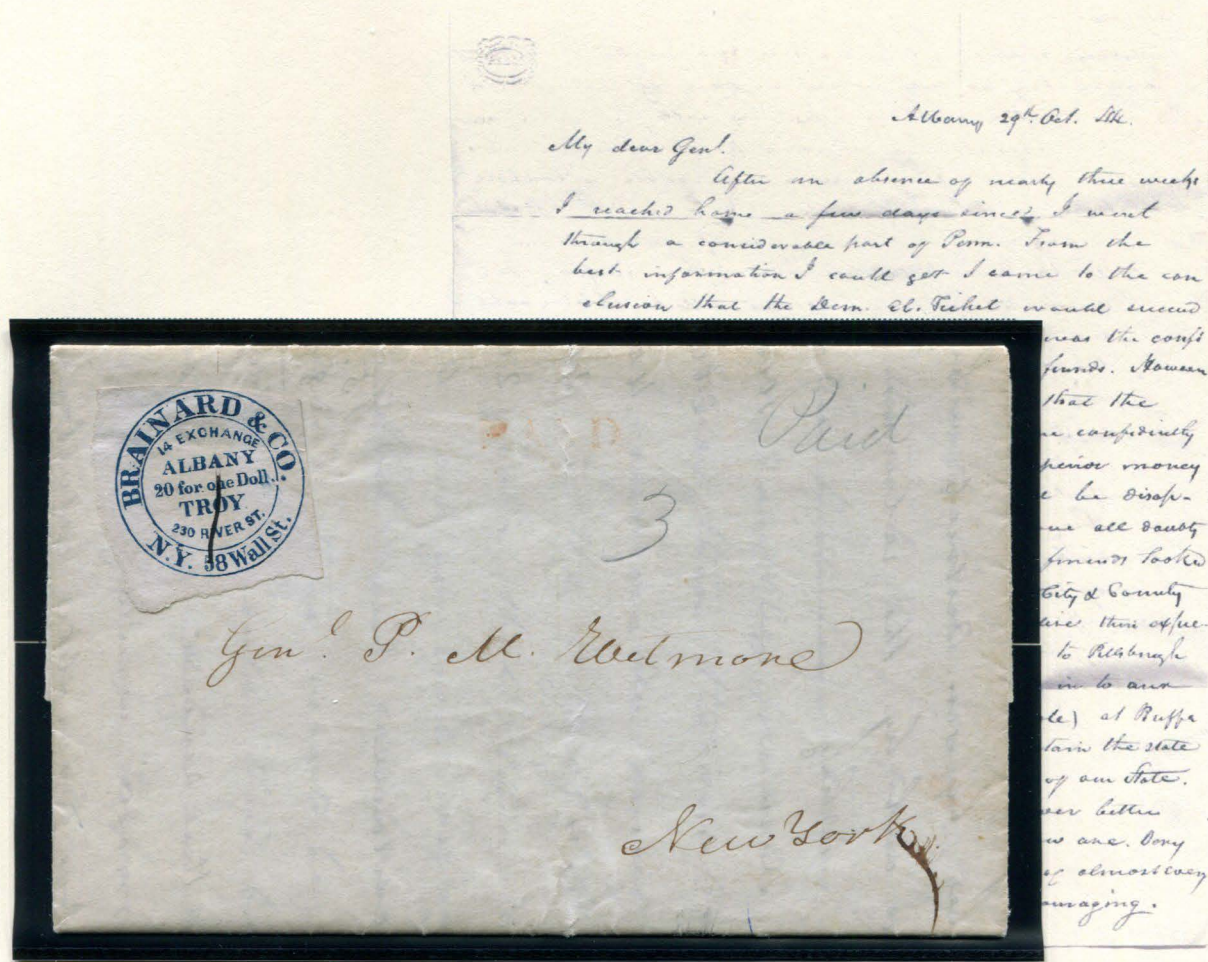 Albany 29th Oct. 
My dear Genl.
After an absence of nearly three weeks
I reached home a few days since, I went
through a considerable part of Penn. From the
best information I could get I came to the con
clusion that the Dem. El. Ticket would succeed
was the confi
friends. Howeve
that the
confidently
money
be disap-
all doubts
friends looked
City & County
their expec-
to Pittsburgh
in to our
at Buffa
tain the state
of our State.
ver better
are.
of almost every
ouraging.
BRAINARD & CO.
14 EXCHANGE
ALBANY
20 for one Doll.
TROY
230 RIVER ST.
N.Y. 58 Wall St.
PAID
Paid
3
Genl. P. M. Wetmore
New York